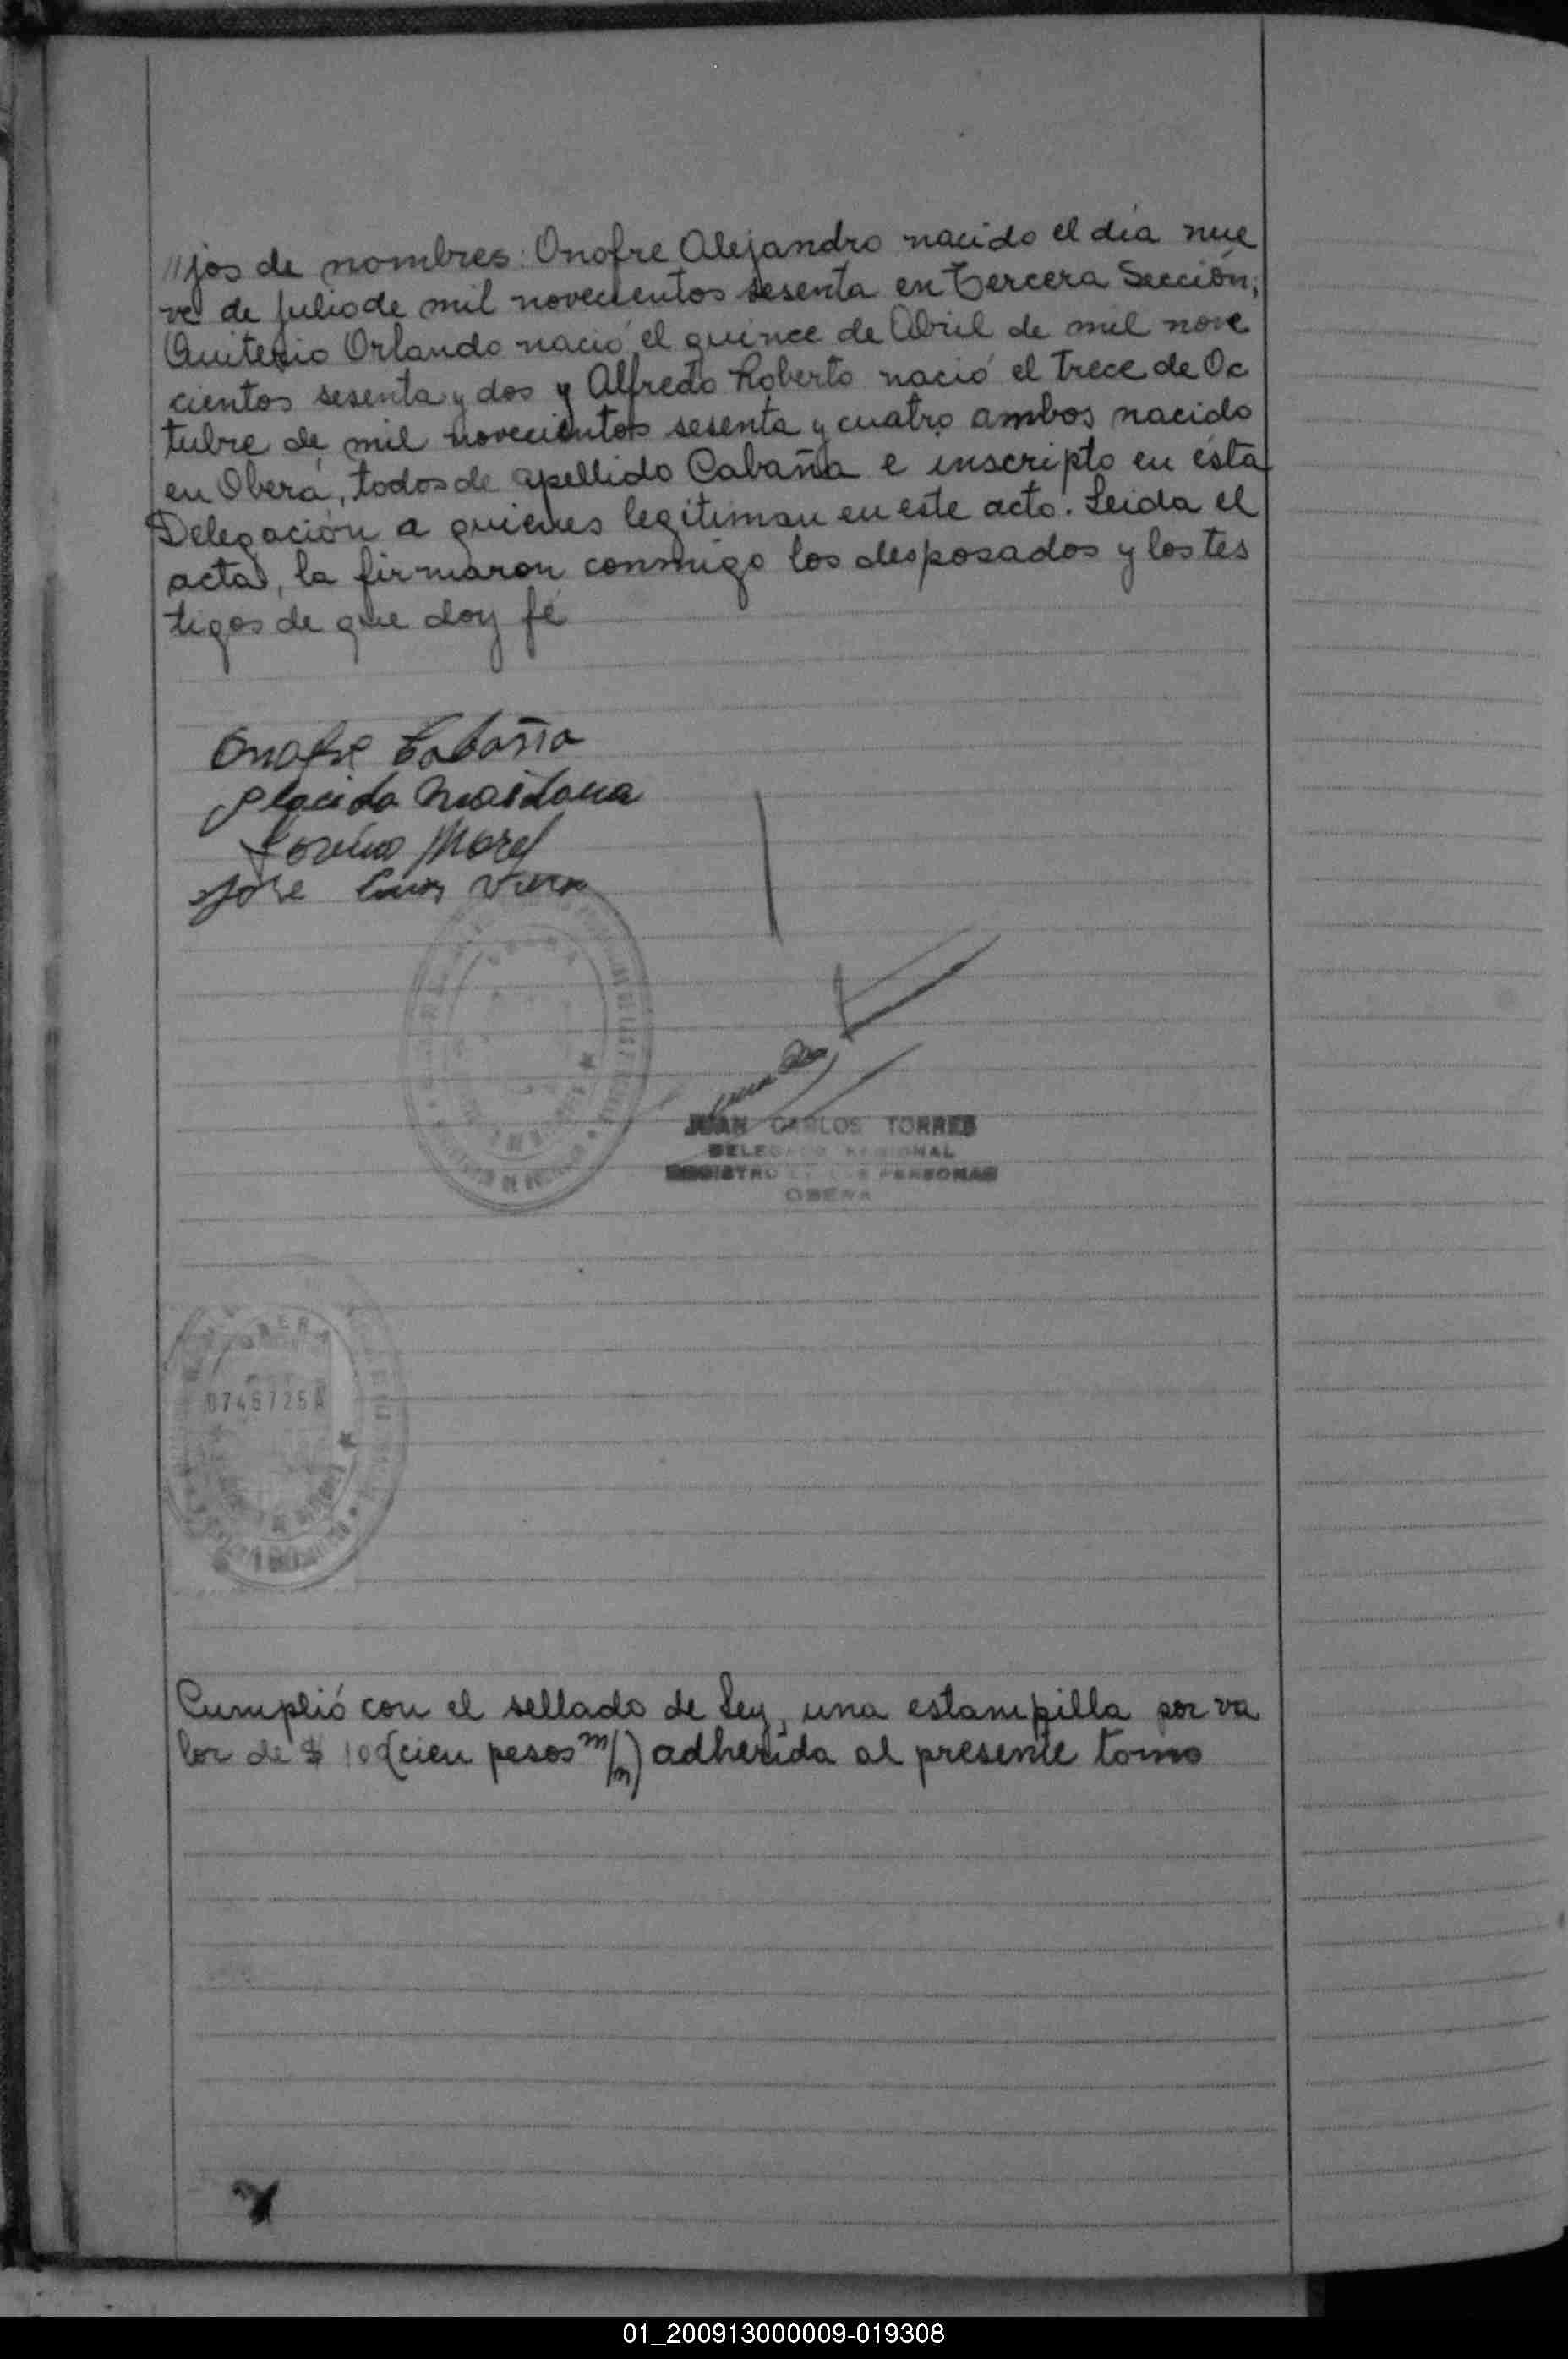 //jos de nombres: Onofre Alejandro nacido el día nue
ve de julio de mil novecientos sesenta en Tercera Sección;
Quiterio Orlando nació el quince de Abril de mil nove
cientos sesenta y dos y Alfredo Roberto nació el trece de Oc
tubre de mil novecientos sesenta y cuatro ambos nacido
en Oberá, todos de apellido Cabaña e inscripto en ésta
Delegación a quienes legitiman en este acto. Leida el
acta, la firmaron conmigo los desposados y los tes
tigos de que doy fé
Onofre Cabaña
Placida Maidana
Morel
Jose Luis
JUAN CARLOS TORRES
DELEGADO REGIONAL
REGISTRO DE LAS PERSONAS
OBERA
OBERA
0746725A
Cumplió con el sellado de Ley, una estampilla por va
lor de $ 100 (cien pesos m/n) adherida al presente tomo
01_200913000009-019308